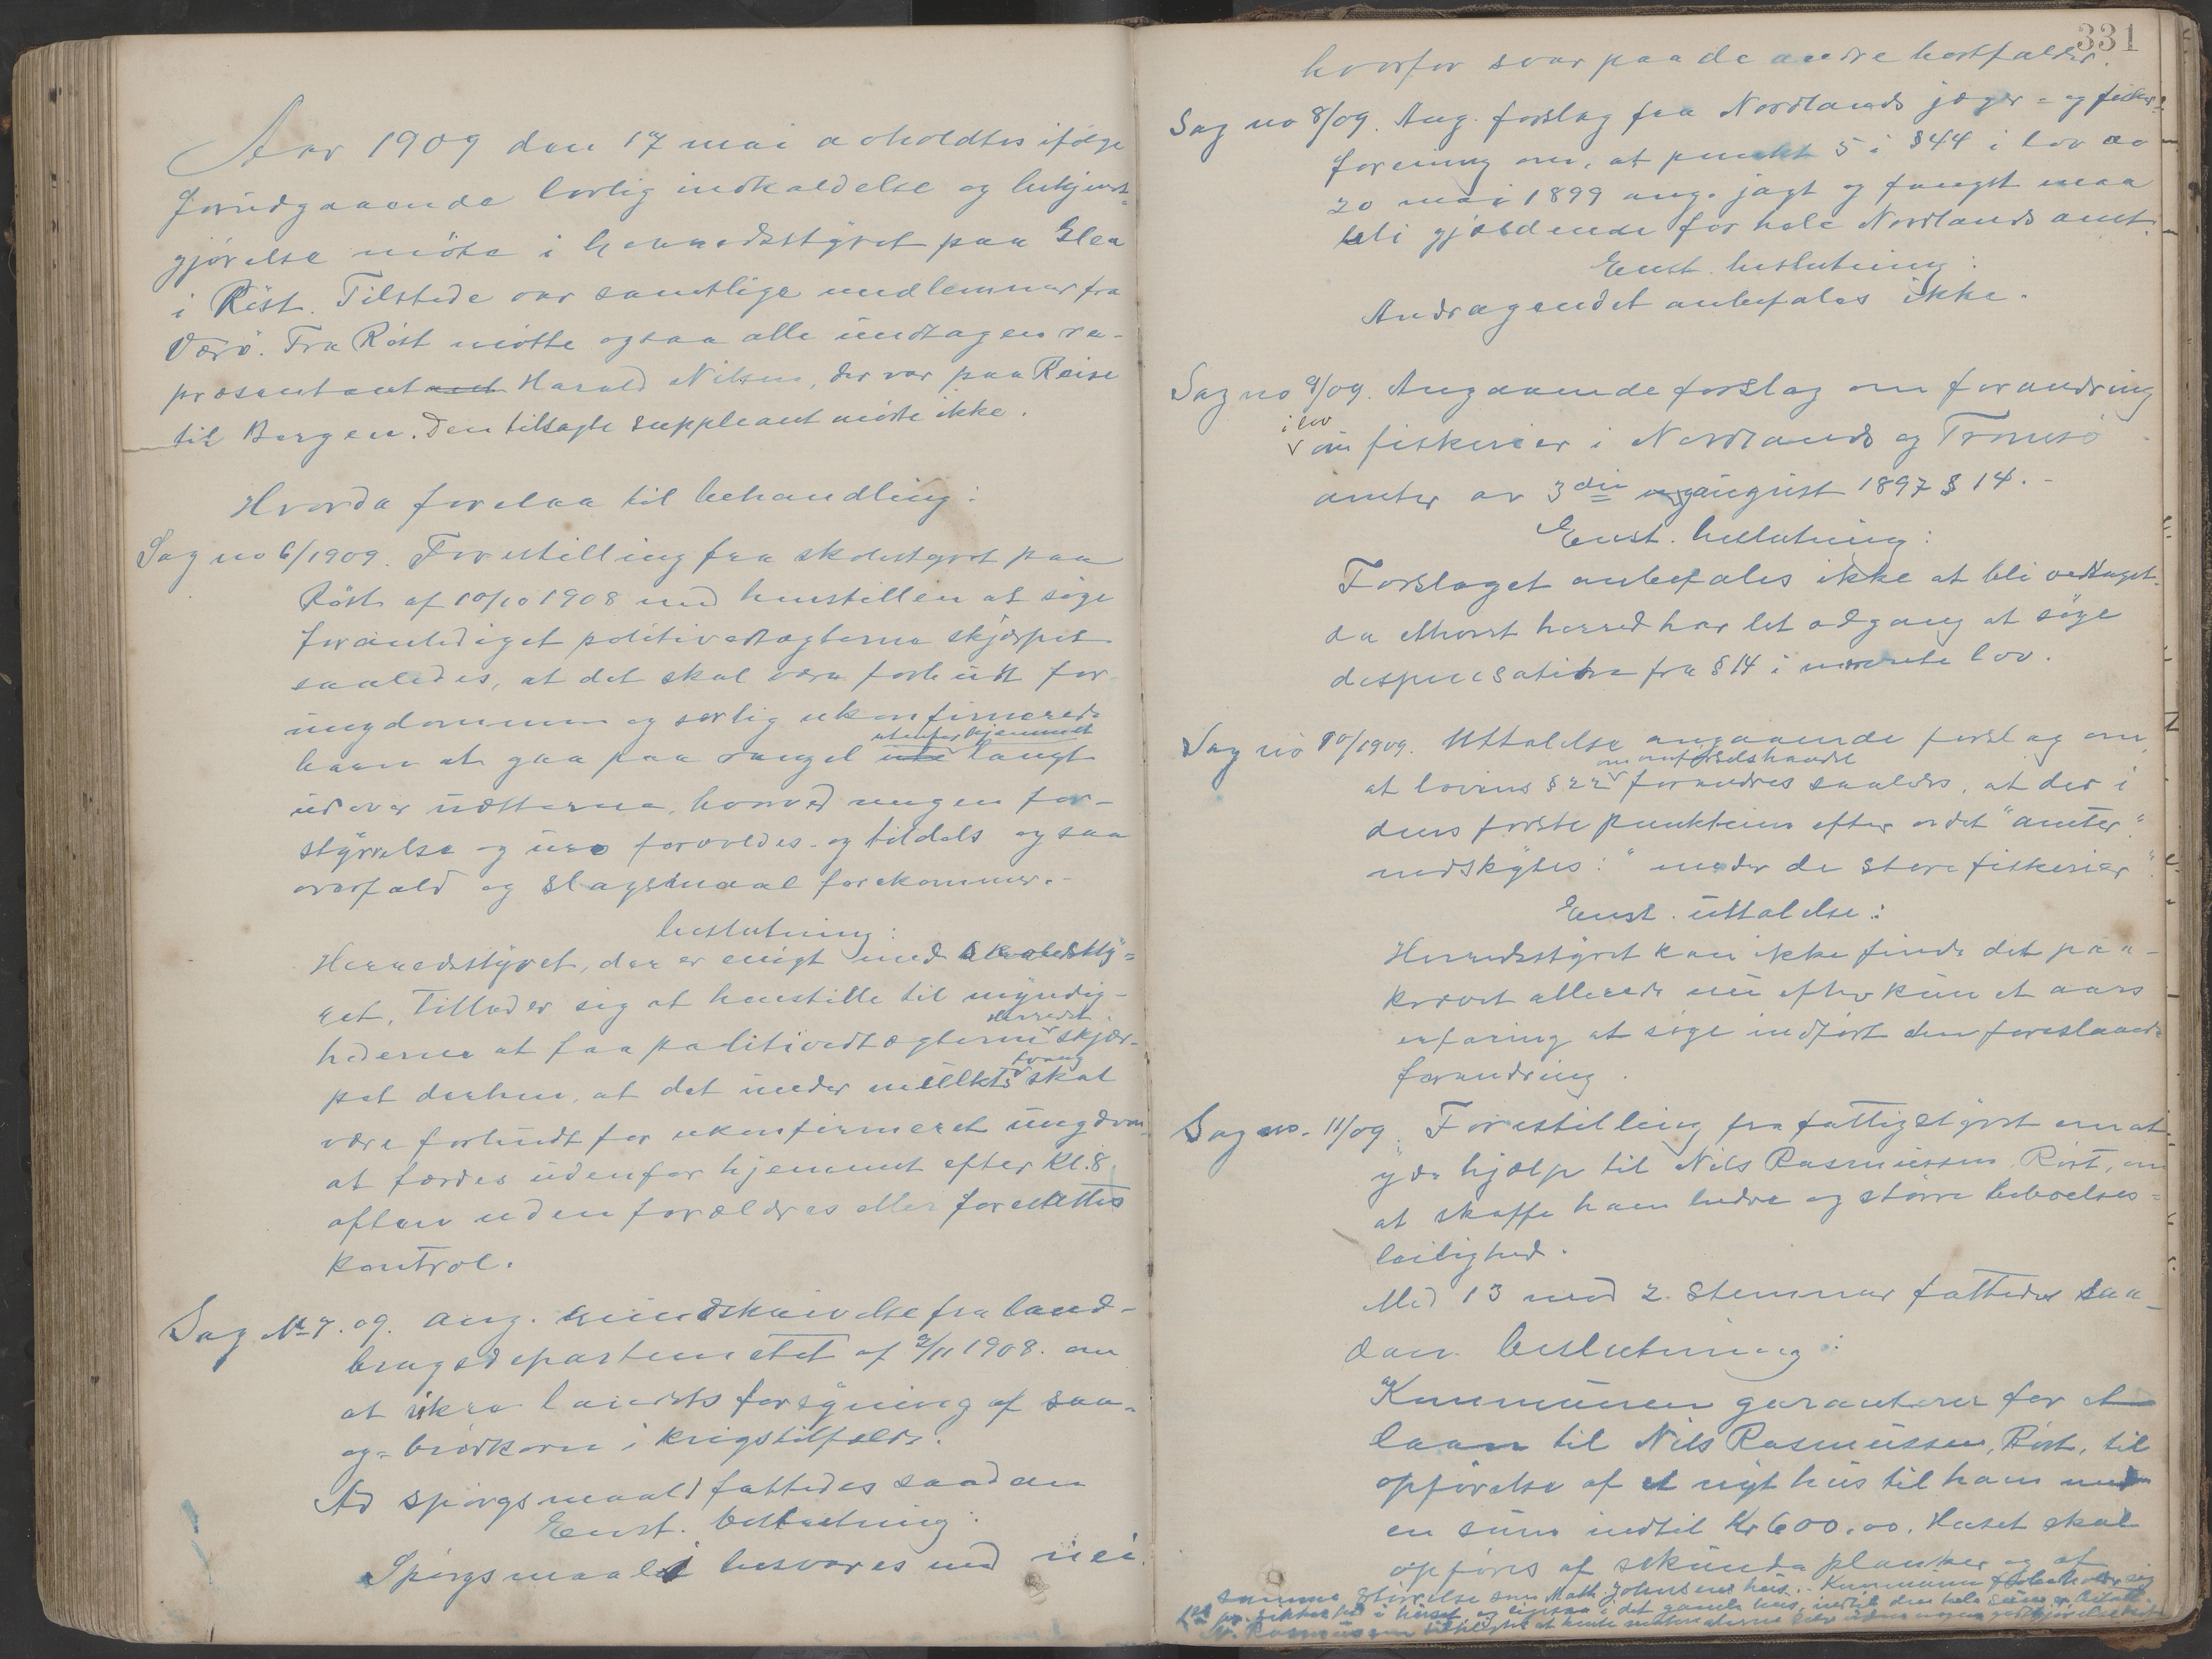 Aar 1909 den 17 mai avholdtes ifølge
forudgaaende lovlig indkaldelse og bekjendt-
gjørelse møte i herredsstyret paa Glea
i Røst. Tilstede var samtlige medlemmer fra
Værø. Fra Røst møtte ogsaa alle undtagen re-
præsentant Harald Nilsen, der var paa Reise
til Bergen. Den tilsagte suppleant møtte ikke.
Hvorda forelaa til behandling:
Sag no 6/1909. Forestilling fra skolestyret paa
Røst af 10/10 1908 med henstillen at søge
foranlediget politivedtægterne skjærpet
saaledes, at det skal være forbudt for
ungdommen og særlig ukonfirmerede
utenfor hjemmet
barn at gaa paa rangel ute langt
udover nætterne, hvorved megen for-
styrrelse og uro forvoldes og tildels ogsaa
overfald og slagsmaal forekommer.-
beslutning:
Herredsstyret, der er enigt med skolesty-
ret, tillader sig at henstille til myndig-
herredet
hederne at faa politivedtægterne skjær-
tvang
pet derhen, at det under mulkts skal
være forbudt for ukonfirmeret ungdom
at færdes udenfor hjemmet efter Kl. 8
aften uden forældres eller foresattes
kontrol.
Sag No 7. 09. Ang. rundskrivelse fra land-
brugsdepartementet af 2/11 1908. om
at sikre landets forsyning af saa-
og brødkorn i krigstilfælde.
Ad spørgsmaal 1 fattedes saadan
Enst. beslutning:
Spørgsmaalet besvares med nei.
331
hvorfor svar paa de andre bortfalder.
Sag no 8/09. Ang. forslag fra Nordlands jæger- og fisker-
forening om, at punkt 5 i § 44 i lov av
20 mai 1899 ang. jagt og fangst maa
bli gjældende for hele Nordlands amt.
Enst. beslutning:
Andragendet anbefales ikke.
Sag no 9/09. Angaaende forslag om forandring
i lov
om fiskerier i Nordlands og Tromsø
amter av 3die august 1897 § 14.-
Enst. beslutning:
Forslaget anbefales ikke at bli vedtaget.
da ethvert herred har let adgang at søge
dispensation fra § 14 i nævnte lov.
Sag no 10/1909. Uttalelse angaaende forslag om
om omførselshandel
at lovens § 22 forandres saaledes, at der i
dens første punktum efter ordet "amter"
indskytes: "under de store fiskerier".
Enst. uttalelse:
Herredsstyret kan ikke finde det paa-
krævet allerede nu efter kun et aars
erfaring at søge indført den foreslaaede
forandring.
Sag no. 11/09. Forestilling fra fattigstyret om at
yde hjælp til Nils Rasmussen Røst, om
at skaffe ham bedre og større beboelses-
leilighed.
Med 13 mod 2 stemmer fattedes saa-
dan beslutning:
Kommunen garanterer for et
laan til Nils Rasmussen, Røst, til
opførelse af et nyt hus til ham med
en sum indtil Kr 600.00. Huset skal
opføres af sekunda planker og af
samme størrelse som Math. Johnsens hus.- Kommunen forbeholder sig
1ste pr. sikkerhed i huset og ligesaa i det gamle hus, indtil den hele sum er betalt.
N. Rasmussen tilpligtes at hente materialerne selv uden nogen godtgjørelse